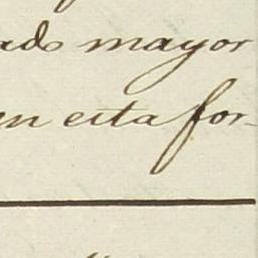 ado mayor
en esta for-